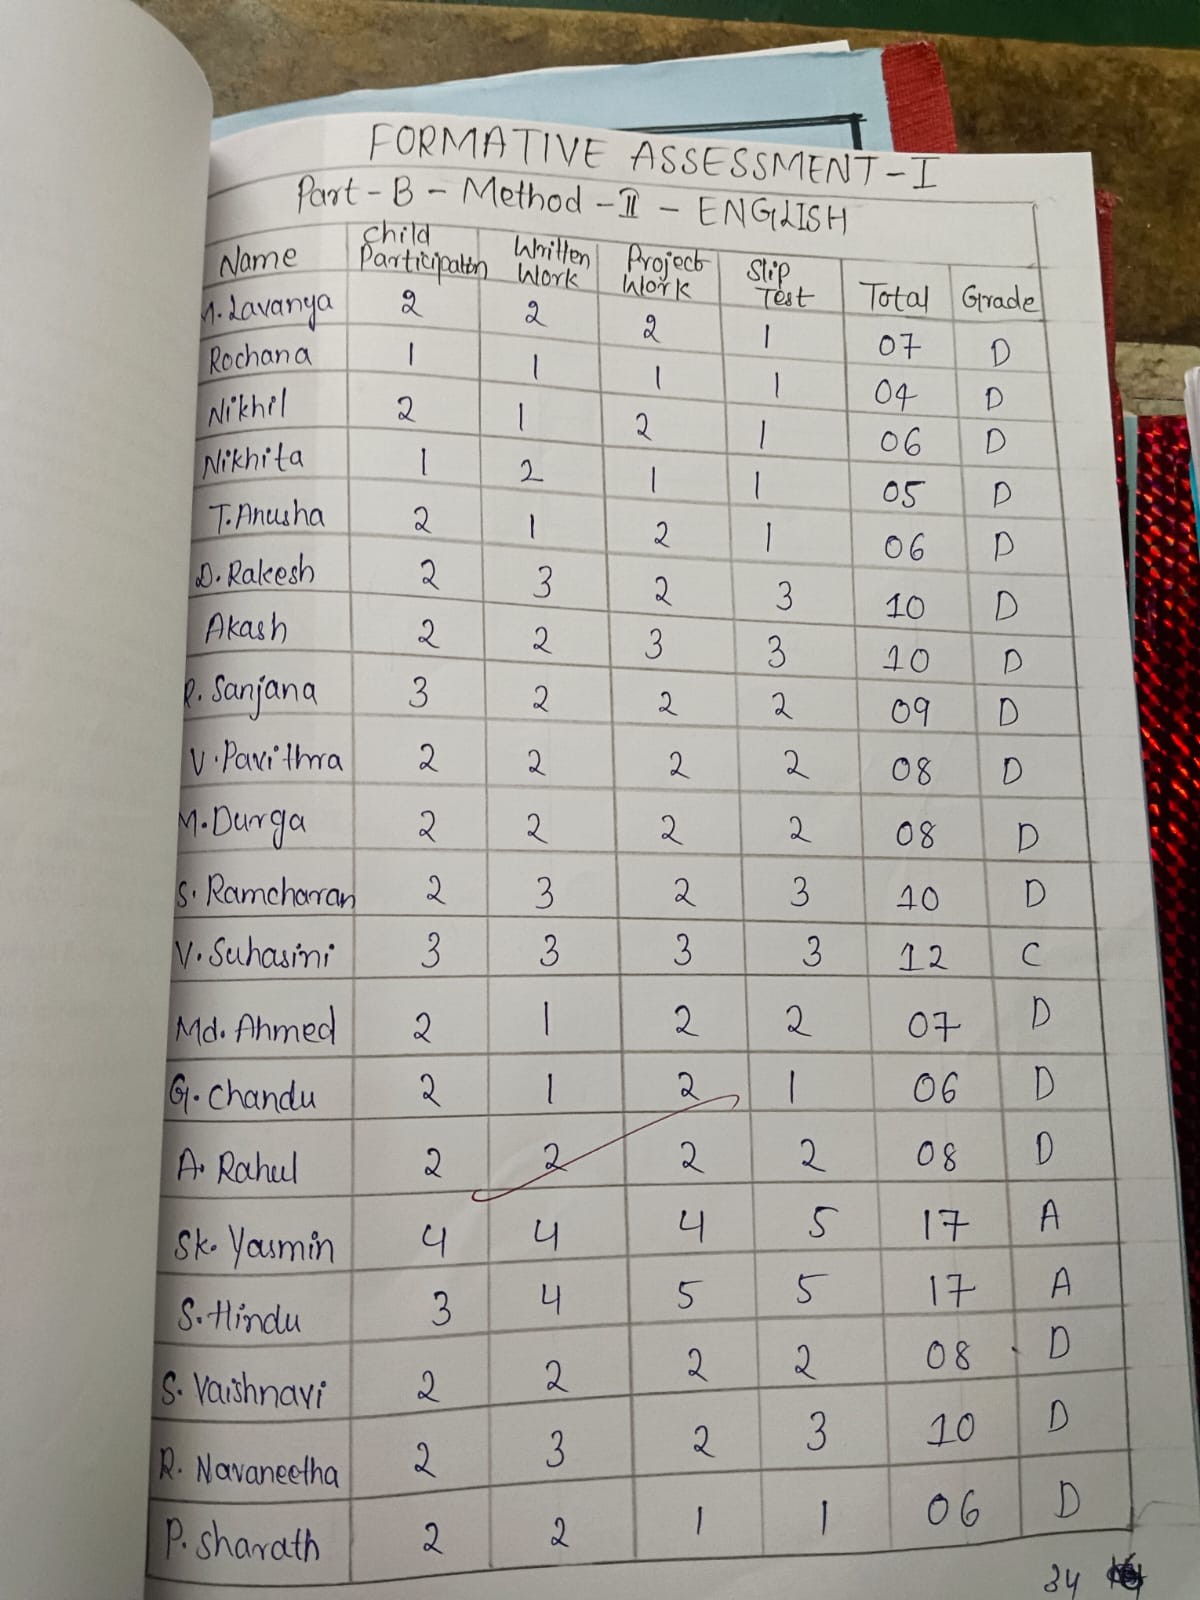 FORMATIVE ASSESSMENT-I
Part-B-Method-II-ENGLISH
Name Child Participation Written Work Project Work Slip Test Total Grade
M. Lavanya 2 2 2 1 07 D
Rochana 1 1 1 1 04 D
Nikhil 2 1 2 1 06 D
Nikhita 1 2 1 1 05 D
T. Anusha 2 1 2 1 06 D
D. Rakesh 2 3 2 3 10 D
Akash 2 2 3 3 10 D
R. Sanjana 3 2 2 2 09 D
V. Pavithra 2 2 2 2 08 D
M. Durga 2 2 2 2 08 D
S. Ramcharan 2 3 2 3 10 D
V. Suhasini 3 3 3 3 12 C
Md. Ahmed 2 1 2 2 07 D
G. Chandu 2 1 2 1 06 D
A. Rahul 2 2 2 2 08 D
Sk. Yasmin 4 4 4 5 17 A
S. Hindu 3 4 5 5 17 A
S. Vaishnavi 2 2 2 2 08 D
R. Navaneetha 2 3 2 3 10 D
P. Sharath 2 2 1 1 06 D
34